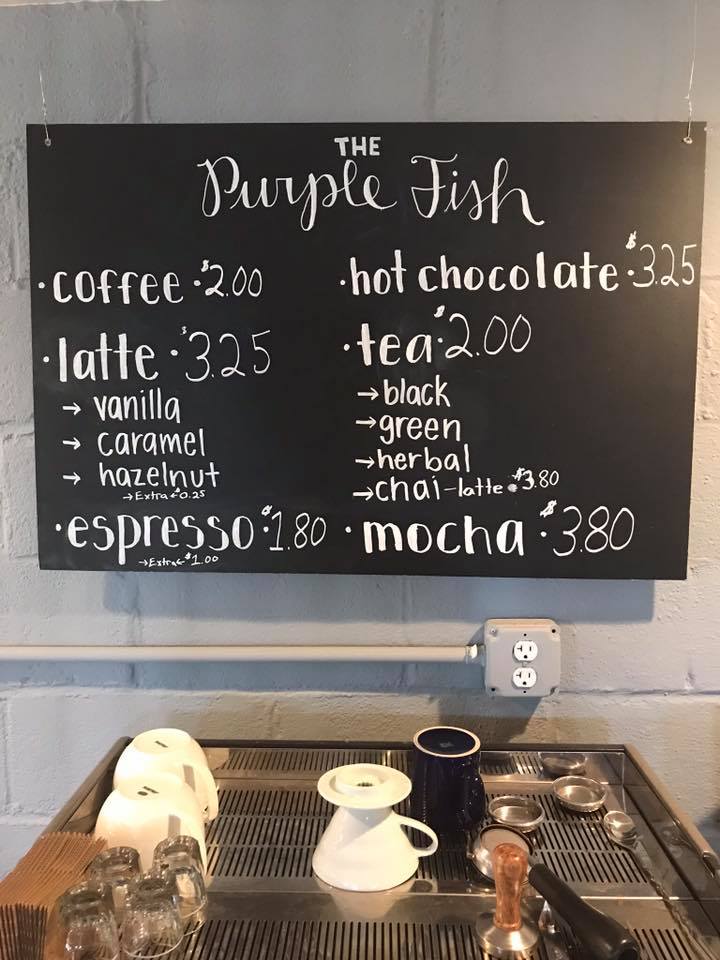 THE
Purple Fish
·coffee ·$2.00
·latte ·$3.25
→ vanilla
→ caramel
→ hazelnut
→Extra ·$0.25
·espresso ·$1.80
→Extra ·$1.00
·hot chocolate ·$3.25
·tea ·$2.00
→black
→green
→herbal
→chai-latte ·$3.80
·mocha ·$3.80